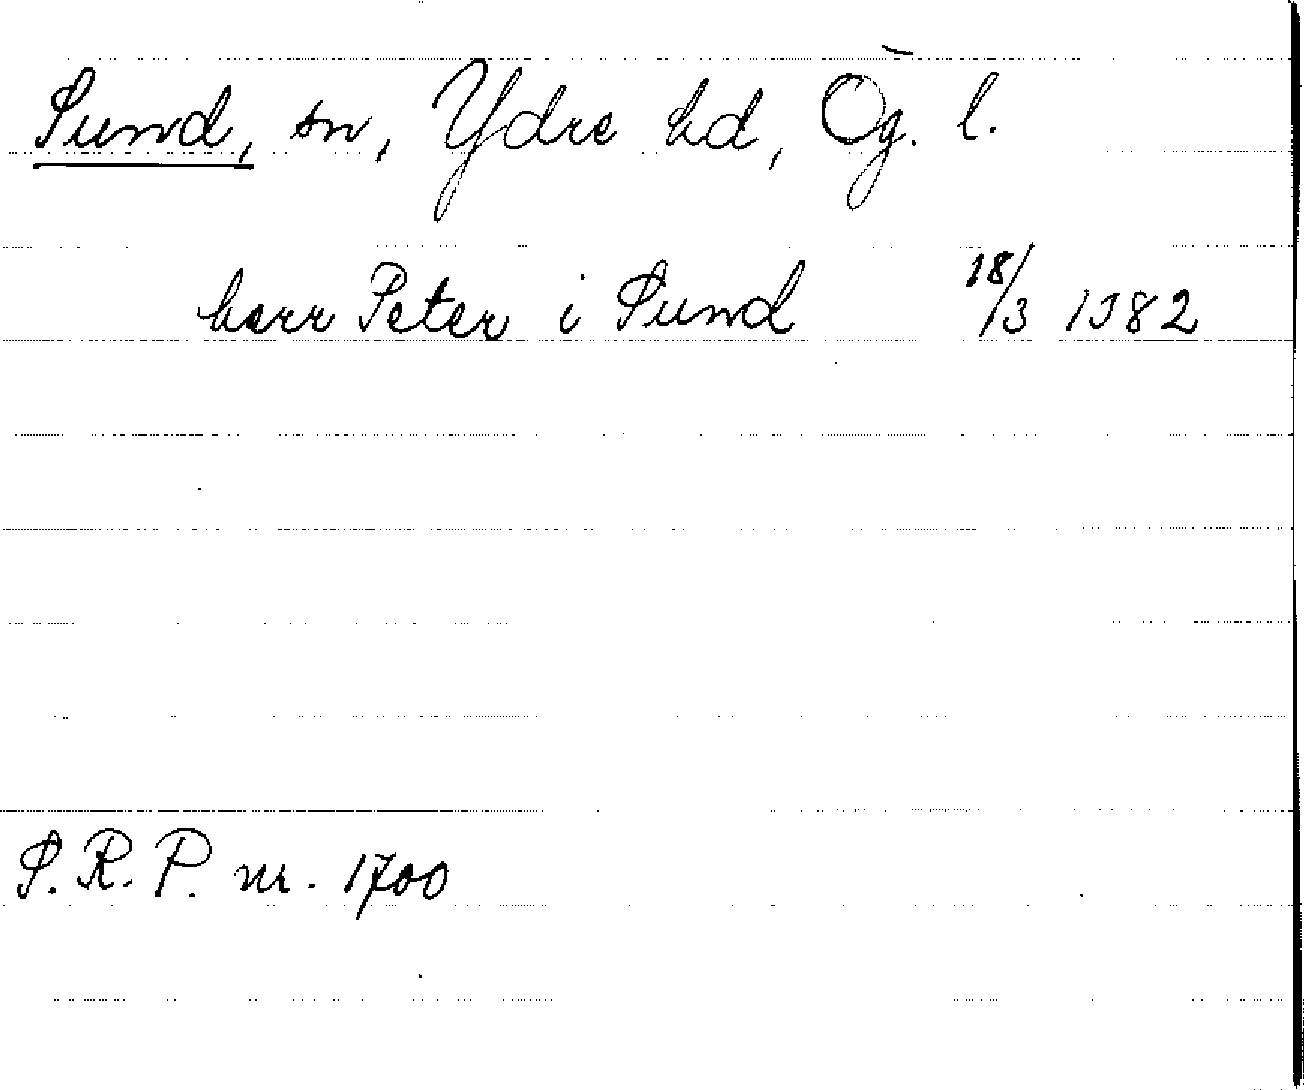 Sund, sn, Ydre hd, Ög. l.
herr Peter i Sund 18/3 1382
S.R.P. nr. 1700